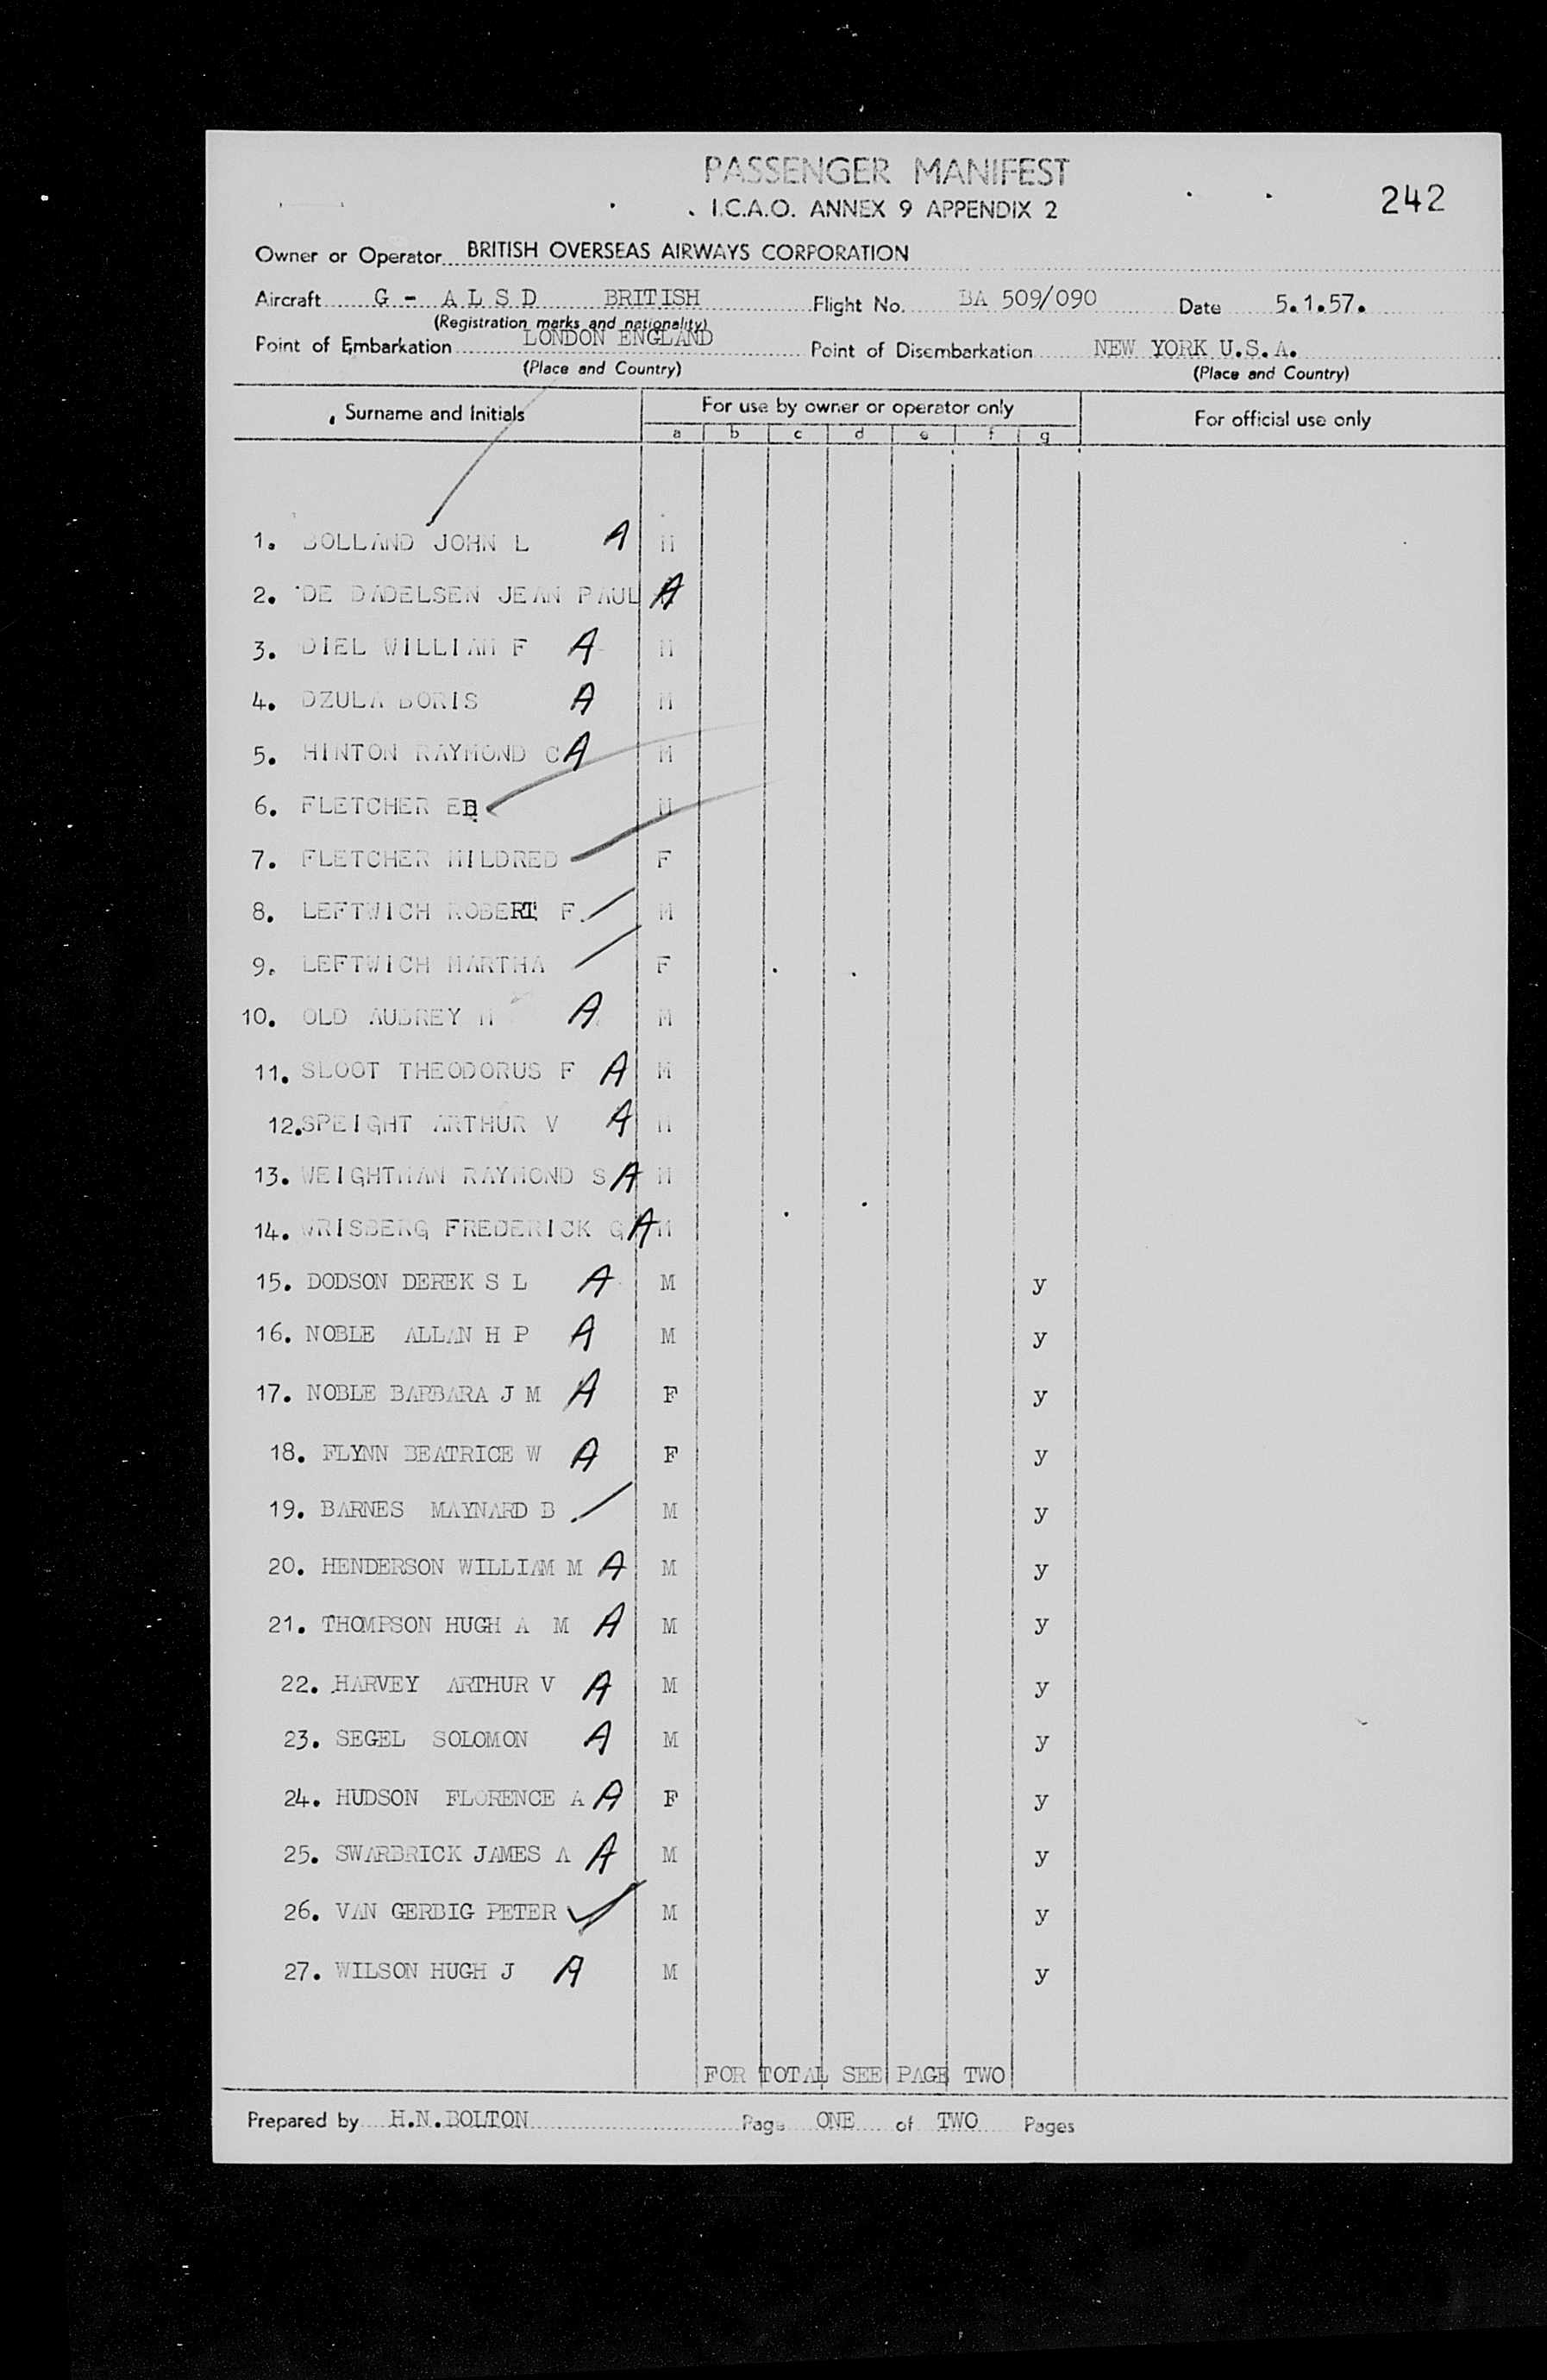 PASSENGER MANIFEST
I.C.A.O. ANNEX 9 APPENDIX 2
242
Owner or Operator BRITISH OVERSEAS AIRWAYS CORPORATION
Aircraft G - A L S D BRITISH Flight No. BA 509/090 Date 5.1.57.
(Registration marks and nationality)
Point of Embarkation LONDON ENGLAND Point of Disembarkation NEW YORK U.S.A.
(Place and Country) (Place and Country)
Surname and Initials For use by owner or operator only For official use only
a b c d e f g
1. BOLLAND JOHN L A M
2. DE DADELSEN JEAN PAUL A
3. DIEL WILLIAM F A M
4. DZULA BORIS A M
5. HINTON RAYMOND C A M
6. FLETCHER ED M
7. FLETCHER MILDRED F
8. LEFTWICH ROBERT F. M
9. LEFTWICH MARTHA F
10. OLD AUBREY M A M
11. SLOOT THEODORUS F A M
12. SPEIGHT ARTHUR V A M
13. WEIGHTMAN RAYMOND S A M
14. WRISBERG FREDERICK G A M
15. DODSON DEREK S L A M y
16. NOBLE ALLAN H P A M y
17. NOBLE BARBARA J M A F y
18. FLYNN BEATRICE W A F y
19. BARNES MAYNARD B M y
20. HENDERSON WILLIAM M A M y
21. THOMPSON HUGH A M A M y
22. HARVEY ARTHUR V A M y
23. SEGEL SOLOMON A M y
24. HUDSON FLORENCE A A F y
25. SWARBRICK JAMES A A M y
26. VAN GERBIG PETER M y
27. WILSON HUGH J A M y
FOR TOTAL SEE PAGE TWO
Prepared by H.N.BOLTON Page ONE of TWO Pages